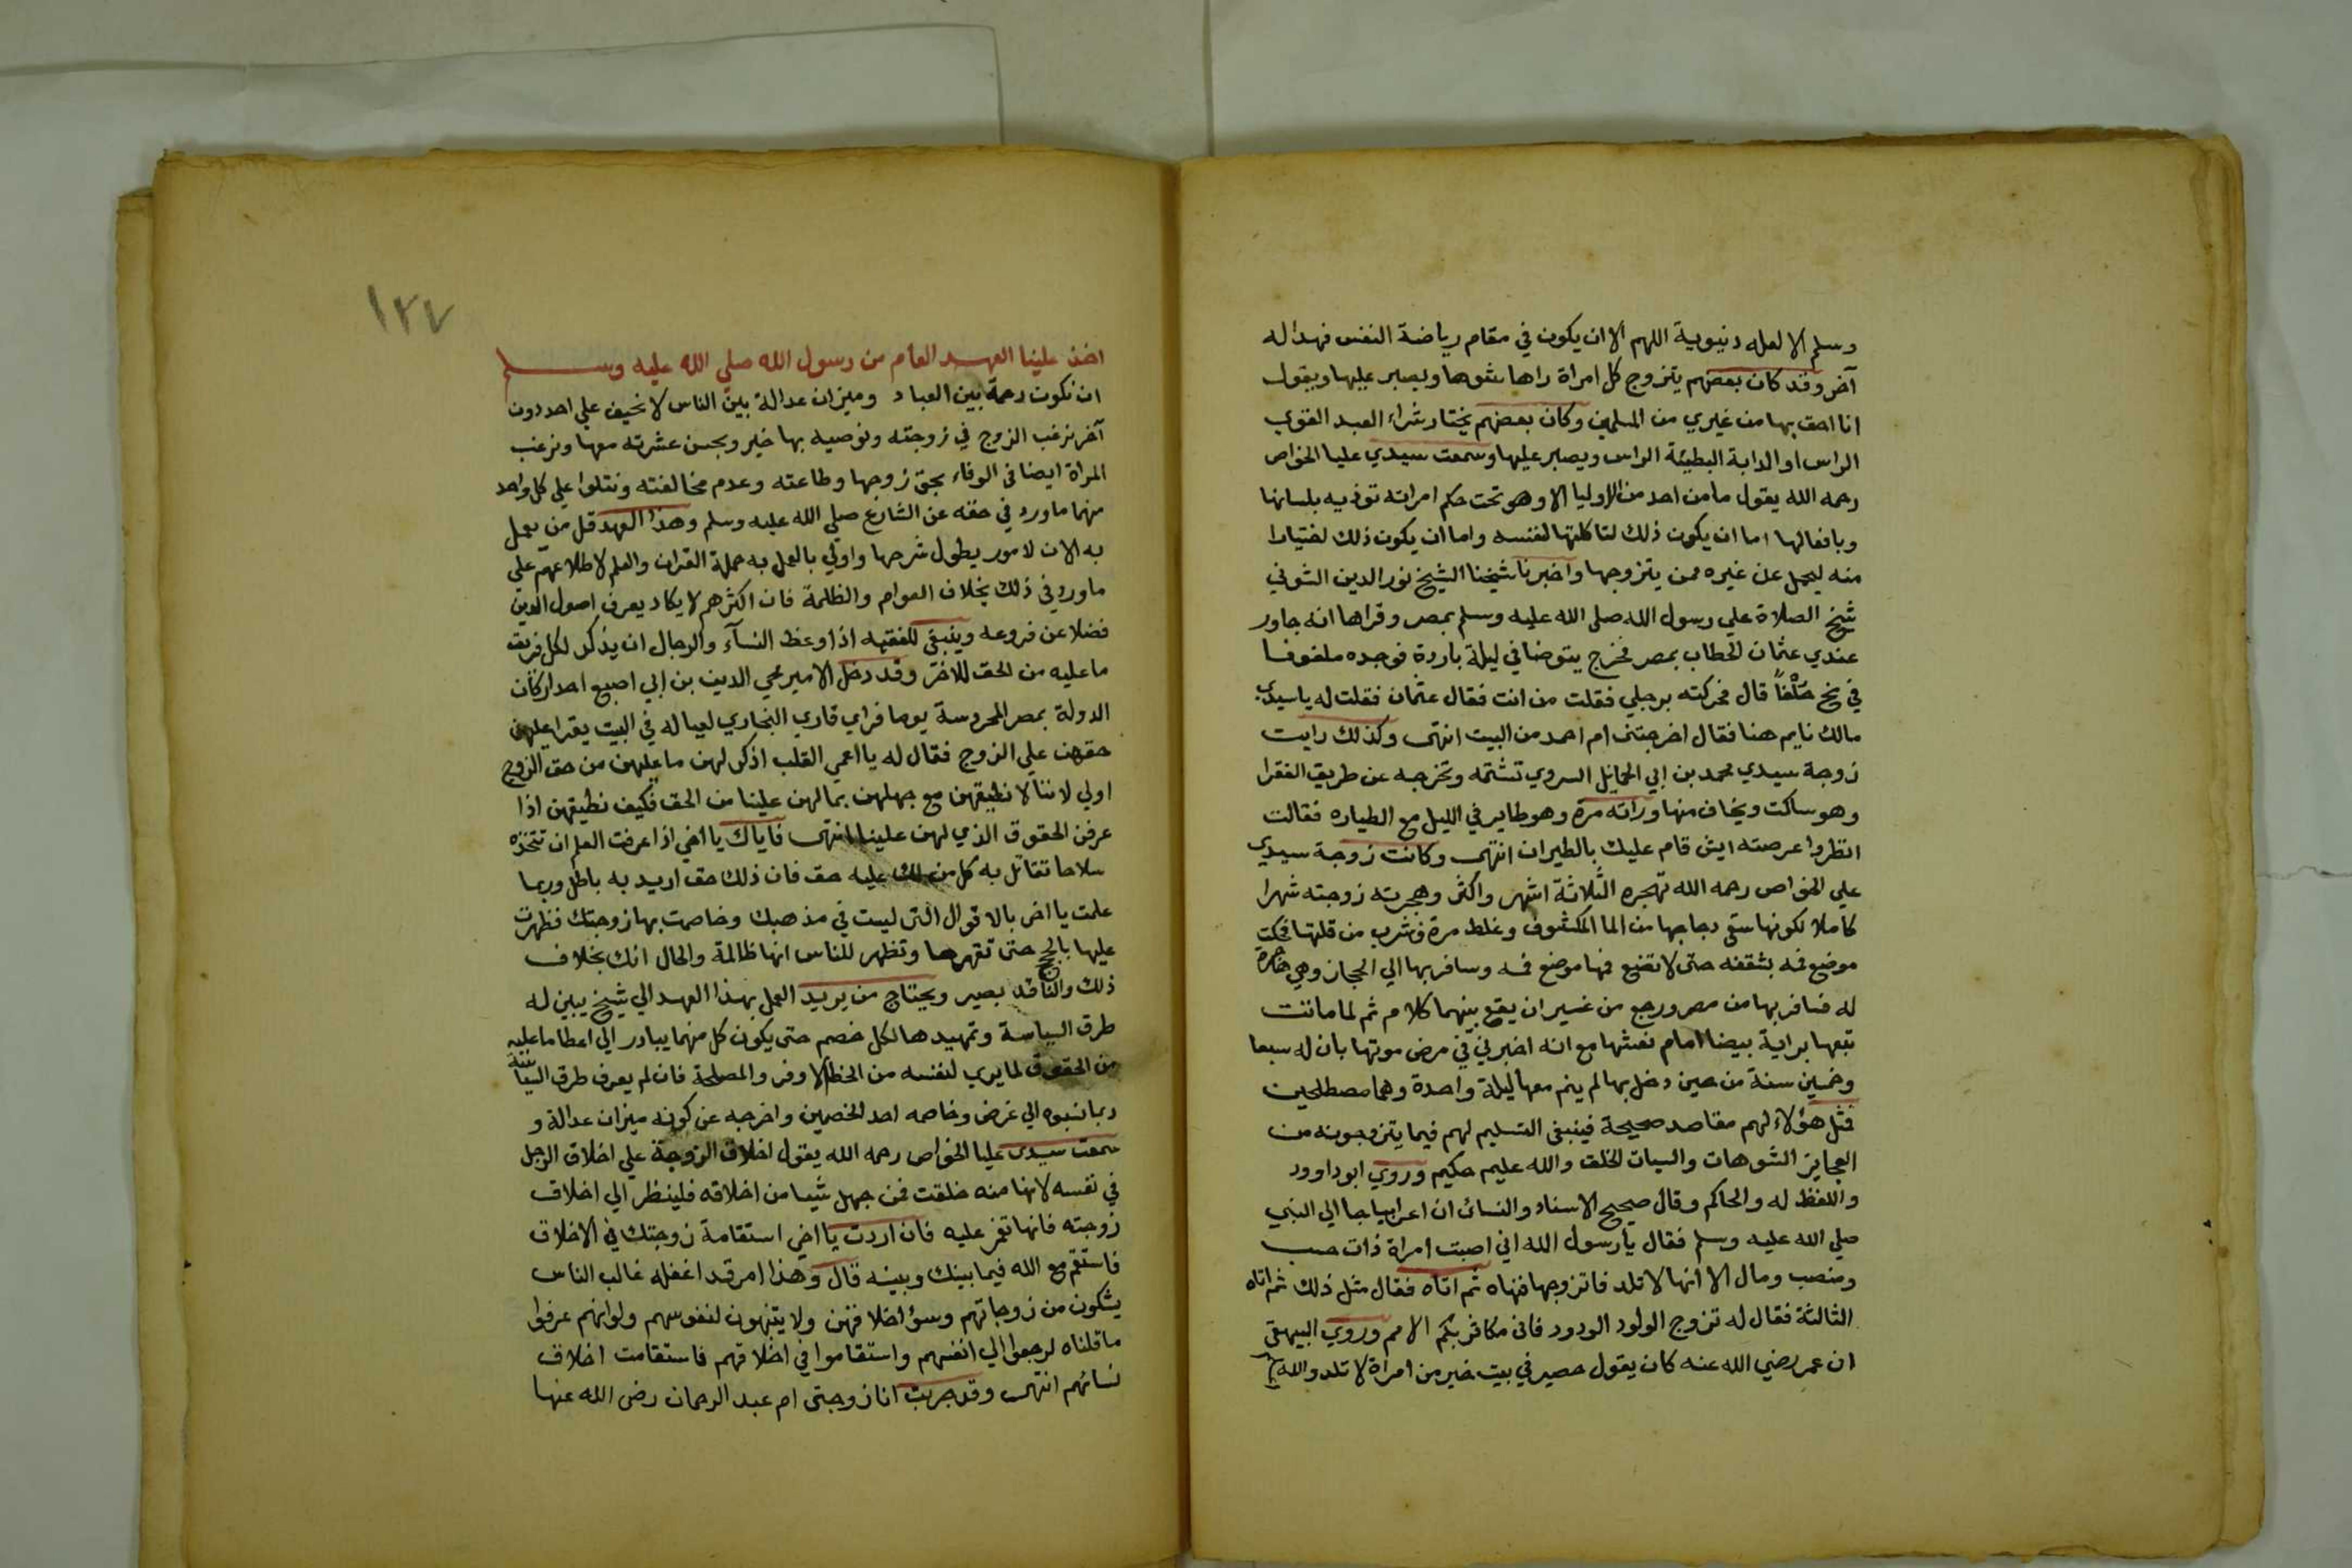 وسلم الا لعلة دنيوية اللهم الا ان يكون في مقام رياضة النفس فهذا له
آخر وقد كان بعضهم يتزوج كل امراة راها شوها ويصبر عليها ويقول
انا احق بها من غيري من المسلمين وكان بعضهم يختار شراء العبد القوي
الراس او الدابة البطيئة الراس ويصبر عليها وسمعت سيدي عليا الخواص
رحمه الله يقول ما من احد من الاوليا الا وهو تحت حكم امراته توذيه بلسانها
وبافعالها اما ان يكون ذلك لمشاكلتها لنفسه واما ان يكون ذلك اختيارا
منه ليحمل عن غيره ممن يتزوجها واخبرنا شيخنا الشيخ نور الدين الشوني
شيخ الصلاة علي رسول الله صلى الله عليه وسلم بمصر وقراها انه جاور
عندي عثمان الحطاب بمصر فخرج يتوضا في ليلة باردة فوجده ملفوفا
في نخ قال فحركته برجلي فقلت من انت فقال عثمان فقلت له يا سيدي
مالك نايم هنا فقال اخرجتني ام احمد من البيت انتهى وكذلك رايت
زوجة سيدي محمد بن ابي الحمائل السروي تشتمه وتخرجه عن طريق الفقرا
وهو ساكت ويخاف منها وراته مرة وهو طاير في الليل مع الطياره فقالت
انظروا عرصته ايش قام عليك بالطيران انتهى وكانت زوجة سيدي
علي الخواص رحمه الله تهجره الثلاثة اشهر واكثر وهجرته زوجته شهرا
كاملا لكونها سقى دجاجها من الما المكشوف وغلط مرة فشرب من قلتها فحكت
موضع فمه بشقفه حتى لا تضع فمها موضع فمه وسافر بها الي الحجاز وهي هاجرة
له فسافر بها من مصر ورجع من غير ان يقع بينهما كلام ثم لما ماتت
تبعها براية بيضا امام نعشها مع انه اخبرني في مرض موتها بان له سبعا
وخمسين سنة من حين دخل بها لم ينم معها ليلة واحدة وهما مصطلحين
فمثل هؤلاء لهم مقاصد صحيحة فينبغى التسليم لهم فيما يتزوجونه من
العجايز الشوهات والسيات الخلق والله عليم حكيم وروي ابو داوود
واللفظ له والحاكم وقال صحيح الاسناد والنسائى ان اعرابيا جا الي النبي
صلي الله عليه وسلم فقال يا رسول الله اني اصبت امراة ذات حسب
ومنصب ومال الا انها لا تلد فاتزوجها فنهاه ثم اتاه فقال مثل ذلك ثم اتاه
الثالثة فقال له تزوج الولود الودود فانى مكاثر بكم الامم وروي البيهقى
ان عمر رضي الله عنه كان يقول حصير في بيت خير من امراة لا تلد والله
١٢٧
اخذ علينا العهد العام من رسول الله صلي الله عليه وسلم
ان نكون رحمة بين العباد وميزان عدالة بين الناس لا نحيف علي احد دون
آخر نرغب الزوج في زوجته ونوصيه بها خير وبحسن عشرته معها ونرغب
المراة ايضا فى الوفاء بحق زوجها وطاعته وعدم مخالفته ونتلوا علي كل واحد
منهما ما ورد في حقه عن الشارع صلي الله عليه وسلم وهذا العهد قل من يعمل
به الان لامور يطول شرحها واولي بالعمل به حملة القران والعلم لاطلاعهم على
ما ورد في ذلك بخلاف العوام والظلمة فان اكثرهم لا يكاد يعرف اصول الدين
فضلا عن فروعه وينبغى للفقيه اذا وعظ النسآء والرجال ان يذكر لكل فريق
ما عليه من الحق للاخر وقد دخل الامير محي الدين بن ابي اصبع احد اركان
الدولة بمصر المحروسة يوما فراي قاري البخاري لعياله في البيت يقرا عليهن
حقهن علي الزوج فقال له يا اعمي القلب اذكر لهن ما عليهن من حق الزوج
اولي لاننا لا نطيقهن مع جهلهن بما لهن علينا من الحق فكيف نطيقهن اذا
عرفن الحقوق الذي لهن علينا انتهى فاياك يا اخي اذا عرفت العلم ان تتخذه
سلاحا تقاتل به كل من لك عليه حق فان ذلك حق اريد به باطل وربما
علمت يا اخى بالاقوال التى ليست في مذهبك وخاصمت بها زوجتك فظهرت
عليها بالحجج حتى تقهرها وتظهر للناس انها ظالمة والحال انك بخلاف
ذلك والناقد بصير ويحتاج من يريد العمل بهذا العهد الي شيخ يبين له
طرق السياسة وتمهيدها لكل خصم حتى يكون كل منهما يبادر الي اعطا ما عليه
من الحقوق لما يري لنفسه من الحظ الاوفر والمصلحة فان لم يعرف طرق السياسة
ربما نسبوه الي غرض وخاصمه احد الخصمين واخرجه عن كونه ميزان عدالة و
سمعت سيدى عليا الخواص رحمه الله يقول اخلاق الزوجة علي اخلاق الرجل
في نفسه لانها منه خلقت فمن جهل شيا من اخلاقه فلينظر الي اخلاق
زوجته فانها تغمز عليه فان اردت يا اخي استقامة زوجتك في الاخلاق
فاستقم مع الله فيما بينك وبينه قال وهذا امر قد اغفله غالب الناس
يشكون من زوجاتهم وسؤ اخلاقهن ولا يتنبهون لنفوسهم ولو انهم عرفوا
ما قلناه لرجعوا الي انفسهم واستقاموا في اخلاقهم فاستقامت اخلاق
نسائهم انتهى وقد جربت انا زوجتى ام عبد الرحمان رضى الله عنها